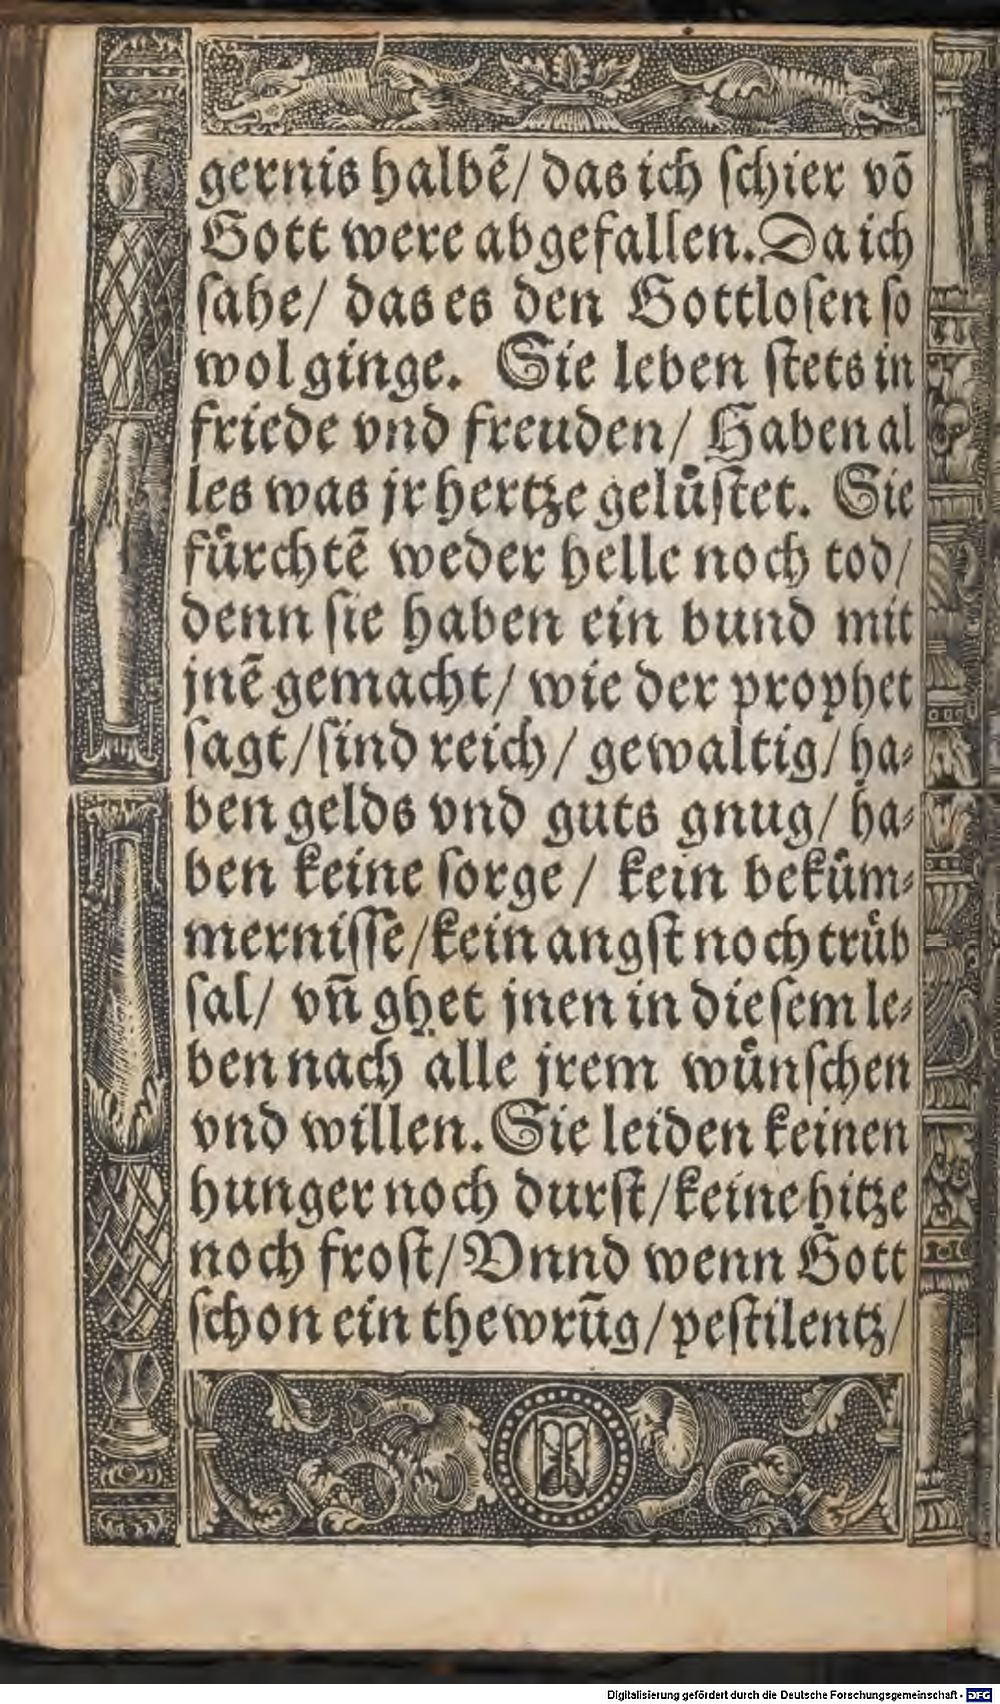 gernis halbẽ/ das ich ſchier võ
Gott were abgefallen. Da ich
ſahe/ das es den Gottloſen ſo
wol ginge. Sie leben ſtets in
friede vnd freuden/ Haben al
les was jr hertze gelůſtet. Sie
fůrchtẽ weder helle noch tod/
denn ſie haben ein bund mit
jnẽ gemacht/ wie der prophet
ſagt/ ſind reich/ gewaltig/ ha⸗
ben gelds vnd guts gnug/ ha⸗
ben keine ſorge/ kein bekům⸗
merniſſe/ kein angſt noch trůb
ſal/ vñ ghet jnen in dieſem le⸗
ben nach alle jrem wůnſchen
vnd willen. Sie leiden keinen
hunger noch durſt/ keine hitze
noch froſt/ Vnnd wenn Gott
ſchon ein thewrũg/ peſtilentz/
Digitalisierung gefördert durch die Deutsche Forschungsgemeinschaft - DFG